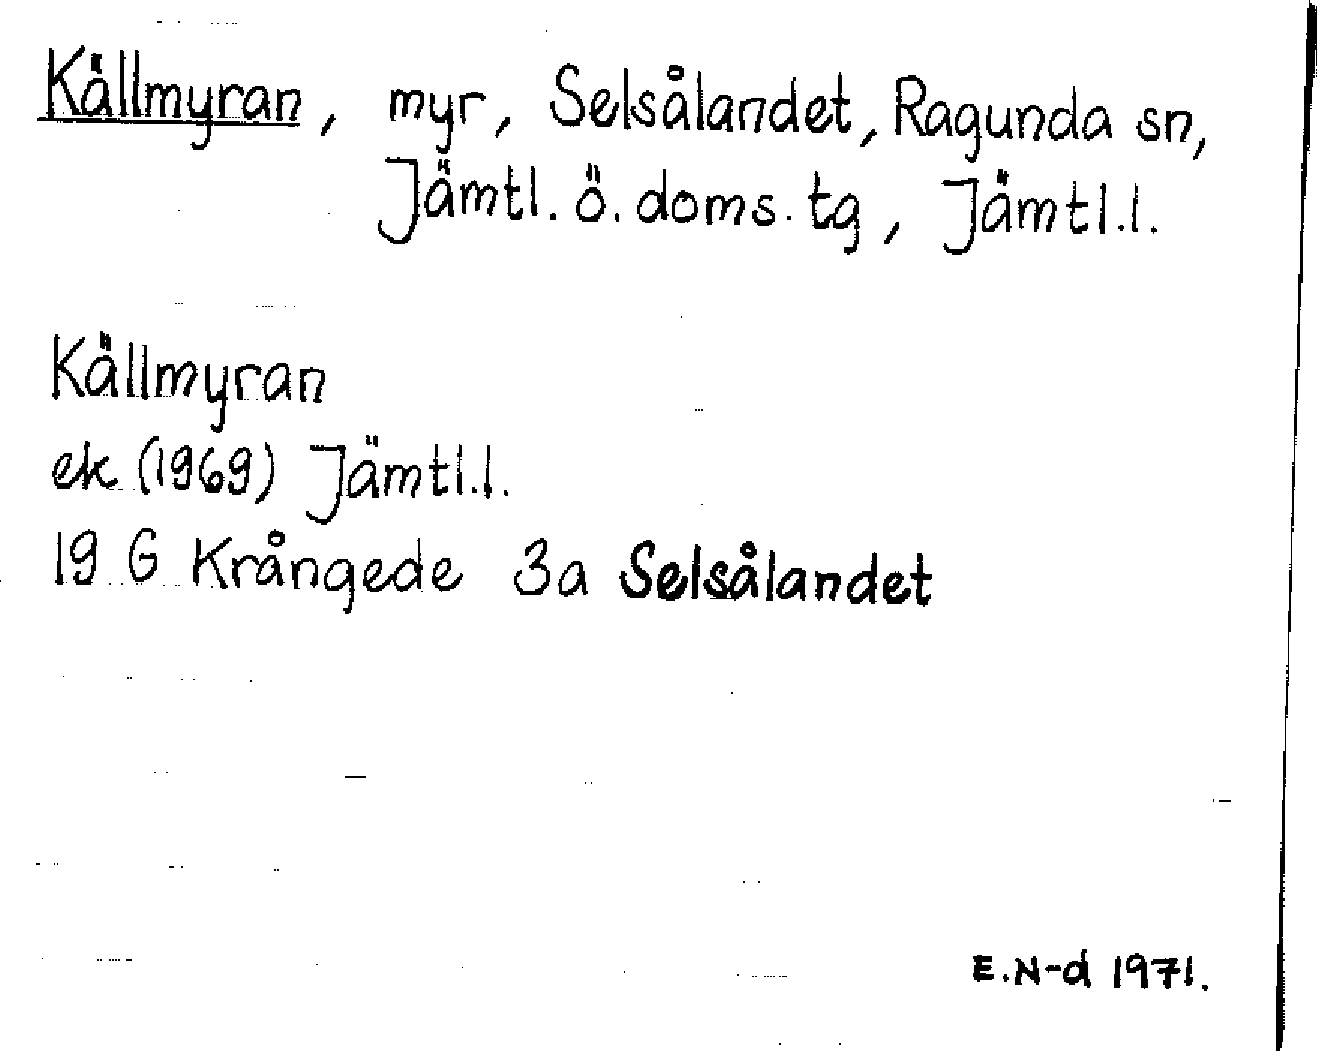 Källmyran, myr, Selsålandet, Ragunda sn,
Jämtl. ö. doms. tg, Jämtl.l.
Källmyran
ek (1969) Jämtl.l.
19 G Krångede 3a Selsålandet
E.N-d 1971.